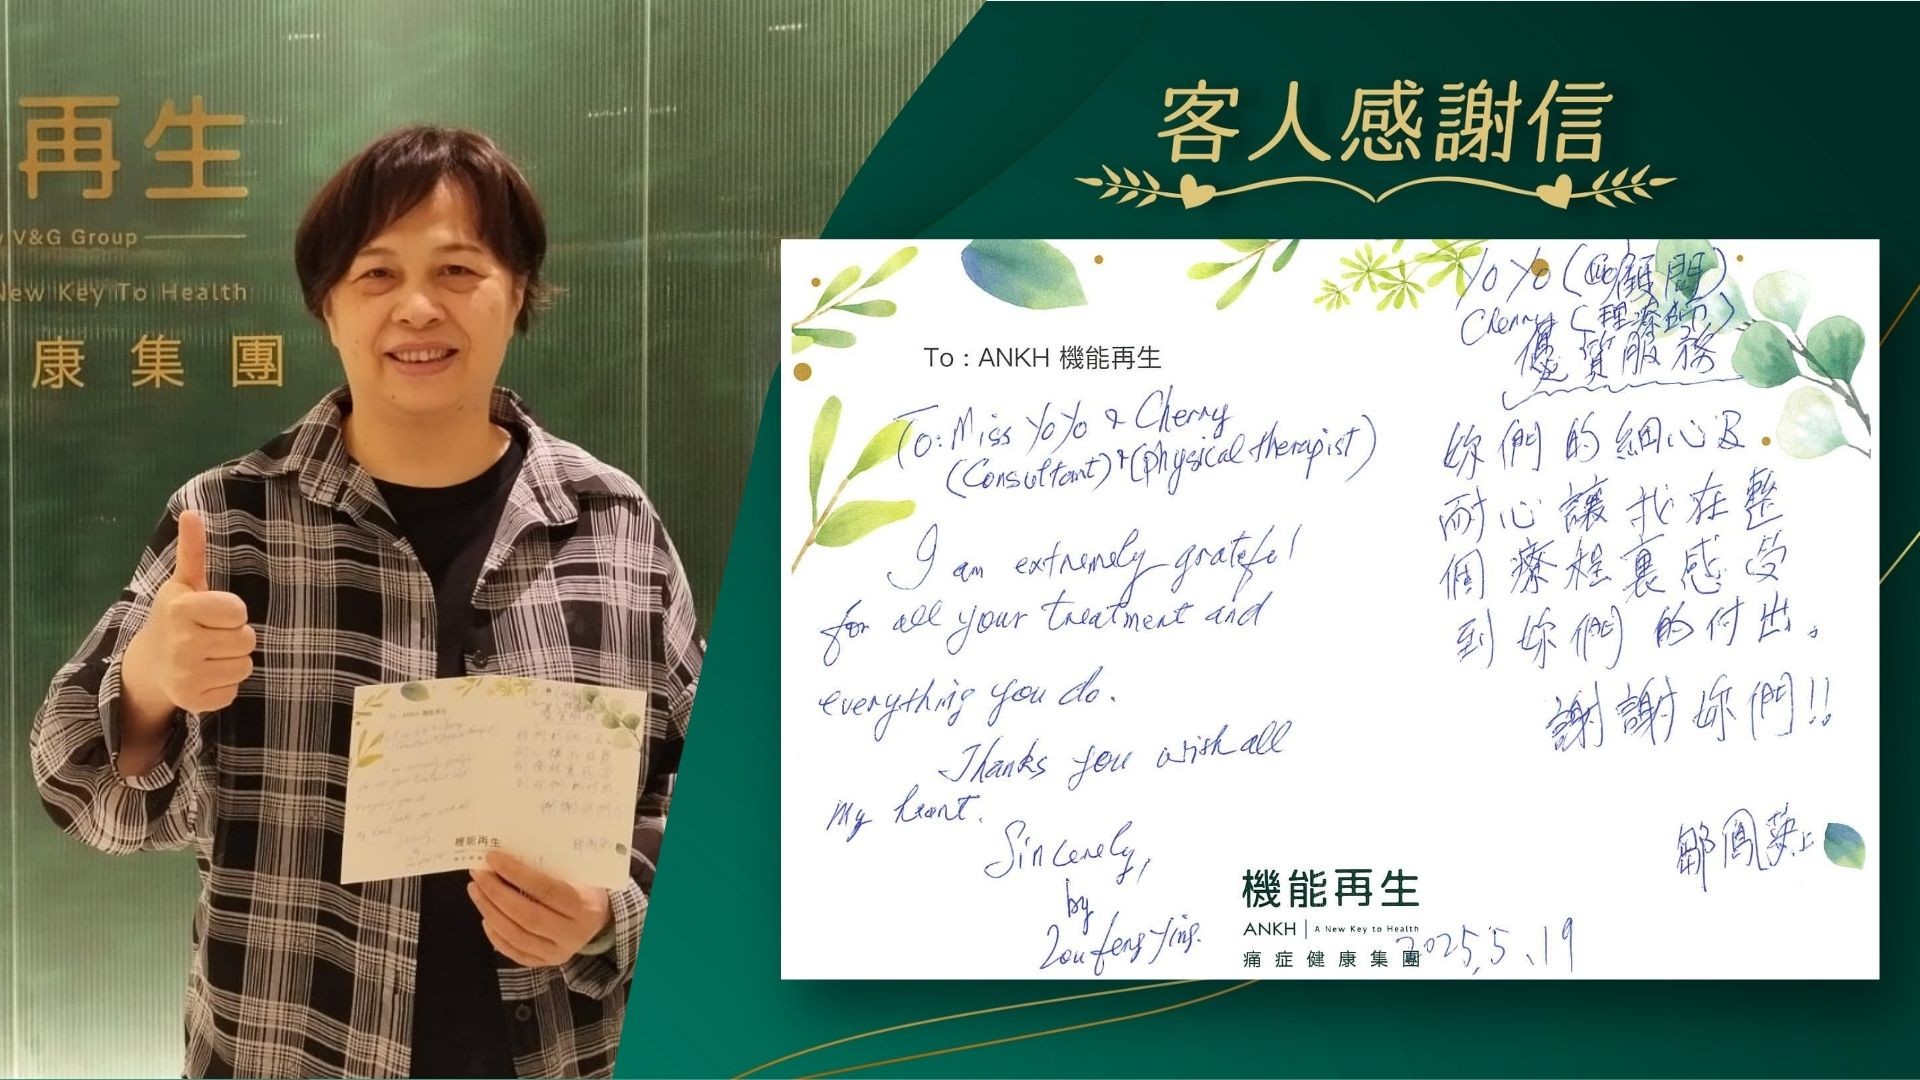 再生
V&G Group
New Key To Health
康集團
客人感謝信
To : ANKH 機能再生
To: Miss YoYo & Cherry
(Consultant) & (physical therapist)
I am extremely grateful
for all your treatment and
everything you do.
Thanks you wish all
my heart.
Sincerely,
by
Zou feng Ying.
YoYo (顧問)
Cherry (理療師)
優質服務
妳們的細心及
耐心讓我在整
個療程裏感受
到妳們的付出。
謝謝妳們!!
鄒鳳英上
機能再生
ANKH | A New Key to Health
痛症健康集團
2025.5.19